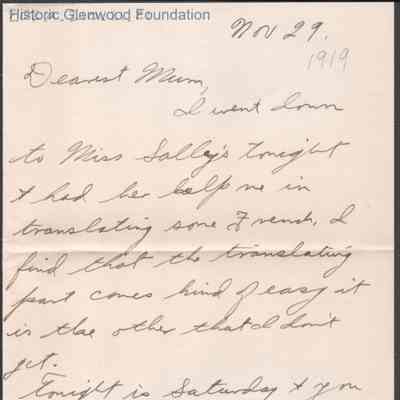 Historic Glenwood Foundation
Nov 29.
1919
Dearest Mum,
I went down
to Miss Salley's tonight
& had her help me in
translating some French. I
find that the translating
part comes kind of easy it
is the other that I don't
get.
Tonight is Saturday & you